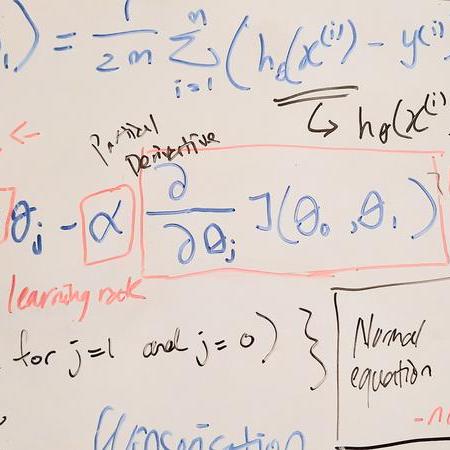 ) = 1/2m m∑i=1 (hθ(x⁽ⁱ⁾ - y⁽ⁱ⁾
↳ hθ(x⁽ⁱ⁾
←
Partial
Derivative
θj - α ∂/∂θj J(θ₀, θ₁)
learning rate
for j=1 and j=0) }
Normal
equation